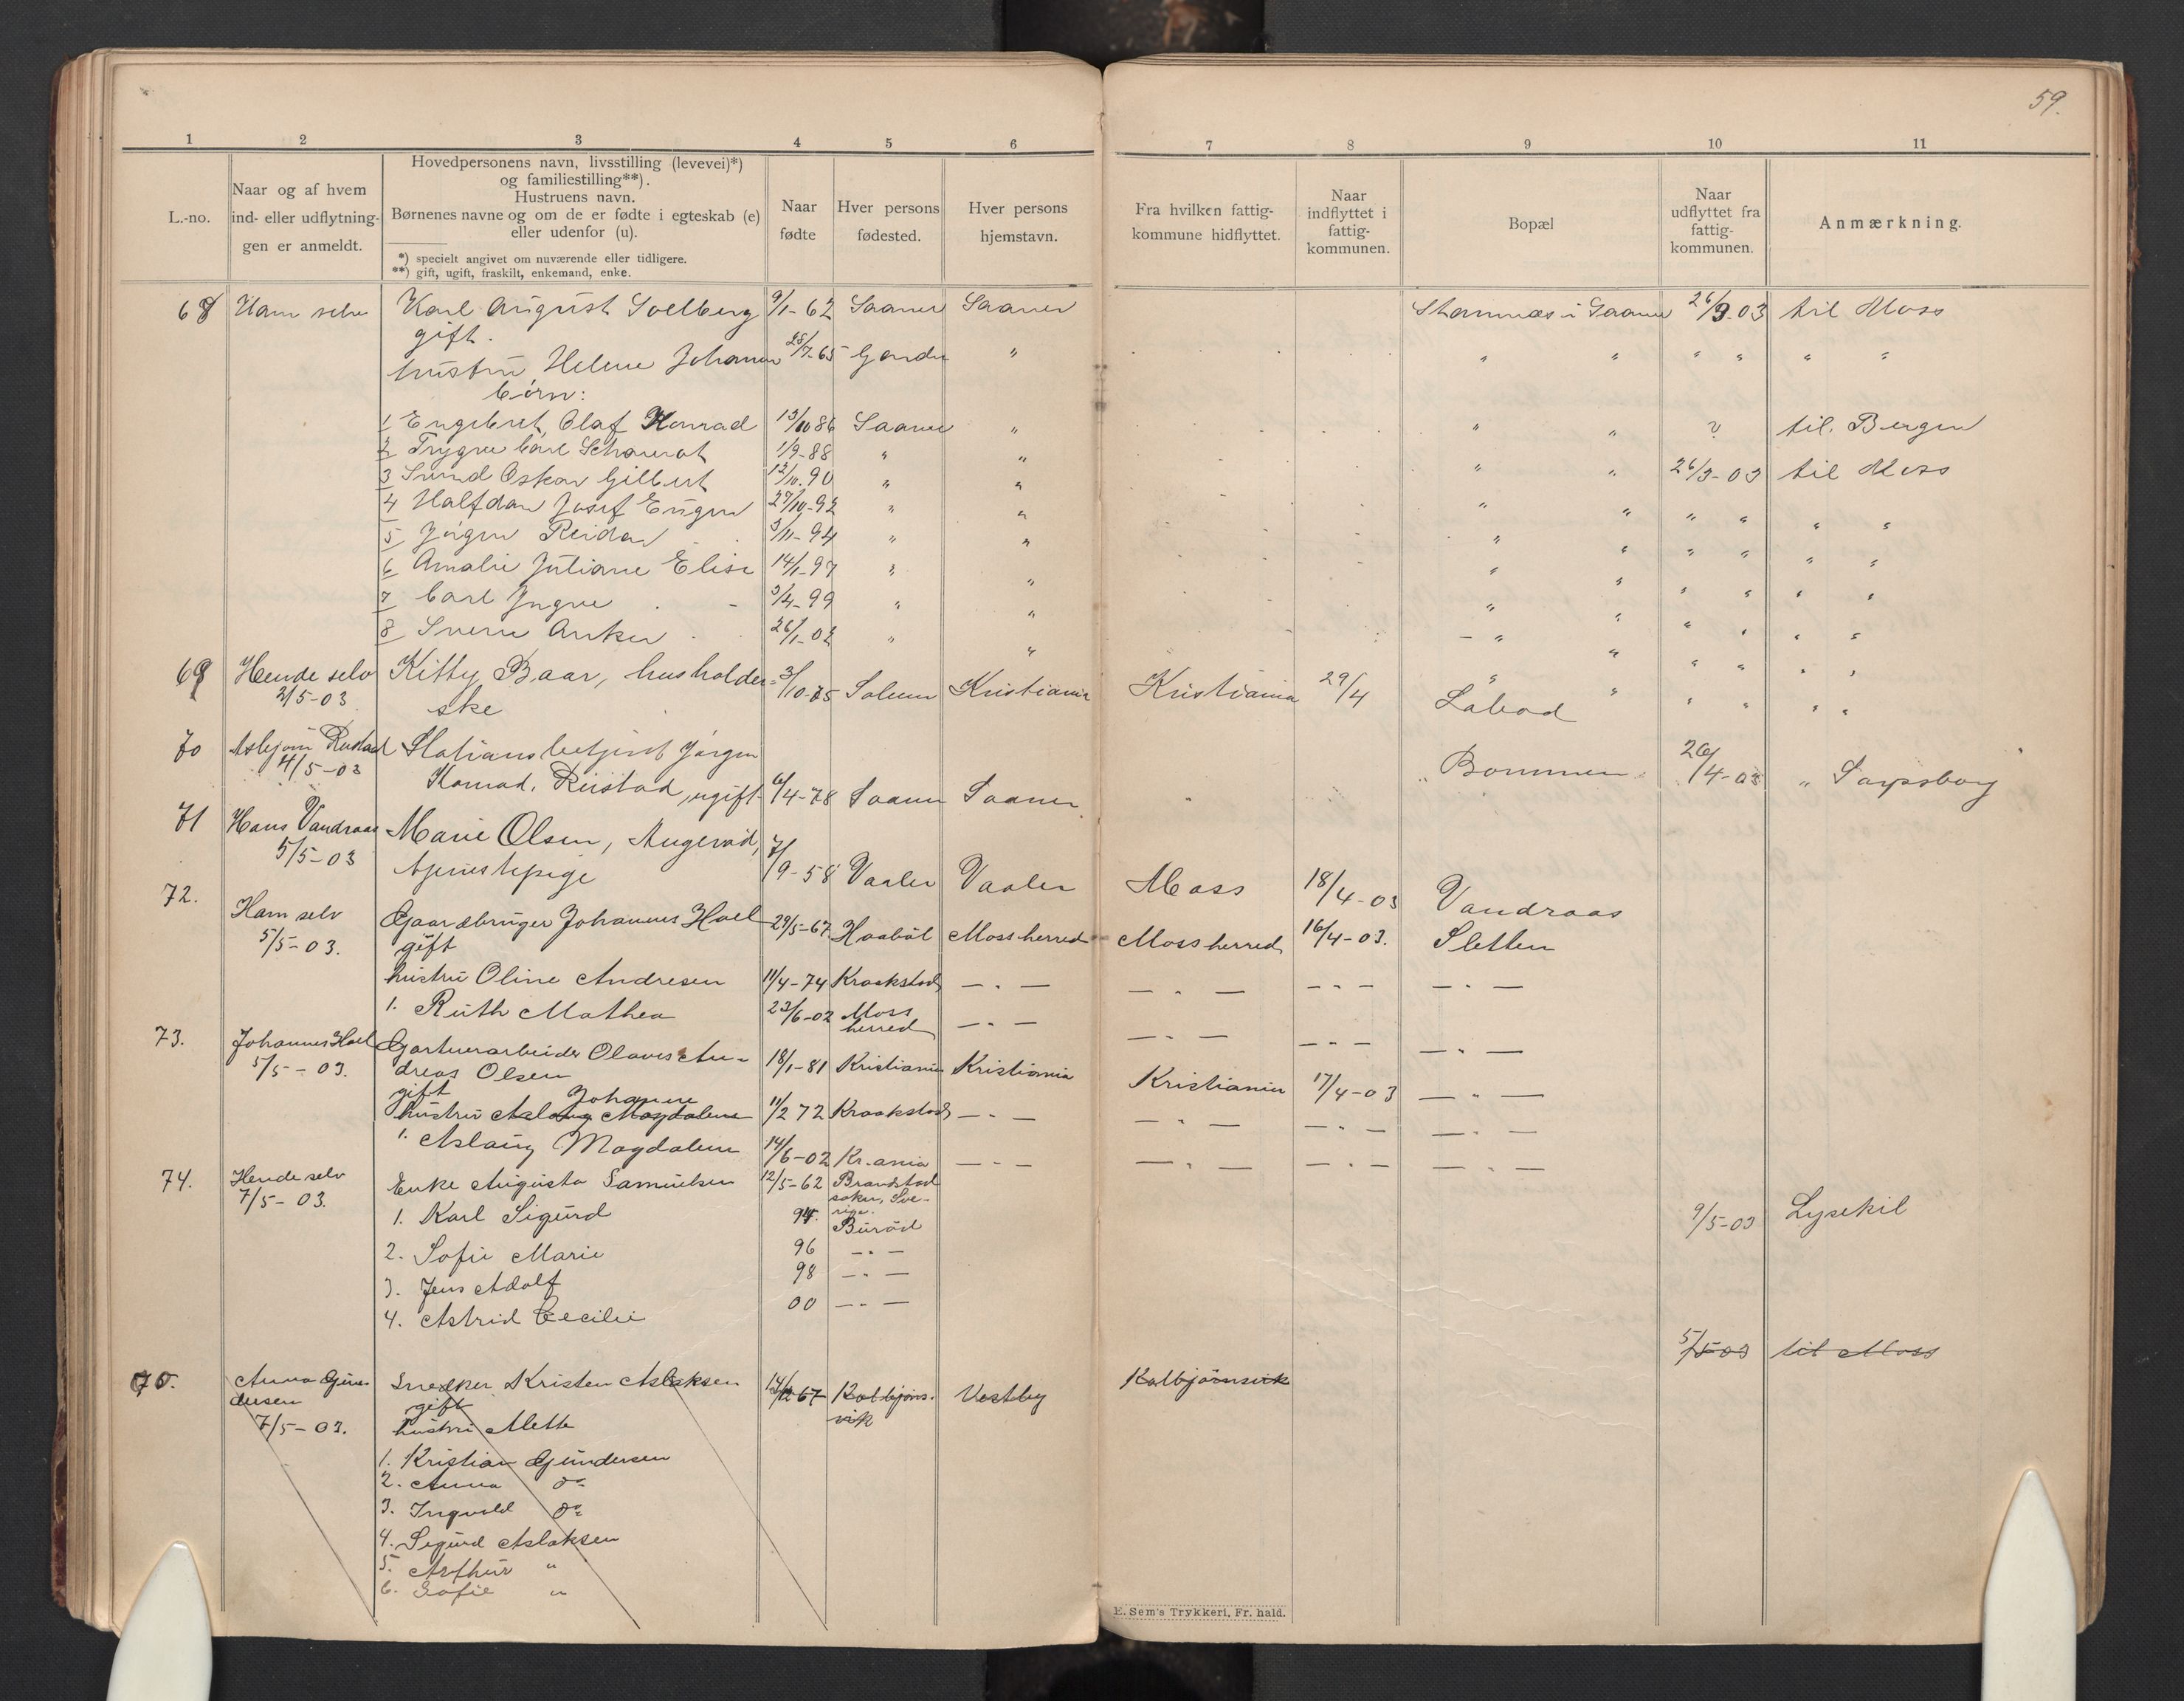 59.
1 2 3 4 5 6 7 8 9 10 11
L.-no.
Naar og af hvem
ind- eller udflytnin-
gen er anmeldt.
Hovedpersonens navn, livsstilling (levevei)*)
og familiestilling**).
Hustruens navn.
Børnenes navne og om de er fødte i egteskab (e)
eller udenfor (u).
*) specielt angivet om nuværende eller tidligere.
**) gift, ugift, fraskilt, enkemand, enke.
Naar
fødte
Hver persons
fødested.
Hver persons
hjemstavn.
Fra hvilken fattig-
kommune hidflyttet.
Naar
indflyttet i
fattig-
kommunen.
Bopæl
Naar
udflyttet fra
fattig-
kommunen.
Anmærkning.
68 Ham selv Karl August Solberg 9/1-62 Saaner Saaner i Saaner 26/3-03 til Moss
gift.
hustru Helene Johanne 28/7-65 " " " " " " "
børn:
1 Engebret Olaf Konrad 13/10 86 Saaner " " " ? til Bergen
2 Trygve Carl 1/9-88 " " " " 26/3-03 til Moss
3 Oskar Gilbert 12/10-90 " " " " " " " "
4 Halfdan Josef Eugen 27/10-92 " " " " " " " "
5 Jørgen Reidar 3/11-94 " " " " " " " "
6 Amalie Juliane Elise 14/1-97 " " " " " " " "
7 Carl Yngve 3/4-99 " " " " " " " "
8 Sverre Anker 26/1-02 " " " " " " " "
69 Hende selv Kitty Baar, husholder- 3/10-75 Solum Kristiania Kristiania 29/4 Labod
2/5-03 ske
70 Asbjørn Rustad Stationsbetjent Jørgen
4/5-03 Konrad Rustad, ugift 6/4-78 Saaner Saaner Bommen 26/4-03 " Sarpsborg
71 Hans Vandraas Marie Olsen, Augerød,
5/5-03 tjenestepige 7/9-58 Vaaler Vaaler Moss 18/4-03 Vandraas
72. Ham selv Gaardbruger Johannes Hoel 29/5-67 Haabøl Mossherred Mossherred 16/4-03. Sletten
5/5-03. gift
hustru Oline Andresen 11/4-74 Kraakstad — " — — " — — " — — " —
1. Ruth Mathea 23/6-02 Moss herred — " — — " — — " — — " —
73. Johannes Hoel Gartnerarbeider Olaves An-
5/5-03. dreas Olsen 18/1-81 Kristiania Kristiania Kristiania 17/4-03 — " —
gift Johanne
hustru Aslaug Magdalene 11/2 72 Kraakstad — " — — " — — " — — " —
1. Aslaug Magdalene 14/6-02 Kr.ania — " — — " — — " — — " —
74. Hende selv Enke Augusta Samuelsen 12/5-62 Brandstad
7/5-03. soken, Sve-
rige.
1. Karl Sigurd 94. Burød 9/5-03 Lysekil
2. Sofie Marie 96 — " —
3. Jens Adolf 98 — " —
4. Astrid Cecilie 00 — " —
5/5-03 til Moss
75. Anna Gun- Snedker Kristen Aslaksen 67 Kolbjørns- Vestby Kolbjørnsvik
dersen gift vik
7/5-03. hustru Mette
1. Kristian Gundersen
2. Anna do
3. Ingvald do
4. Sigurd Aslaksen
5. Arthur "
6. Sofie "
E. Sem's Trykkeri, Fr. hald.